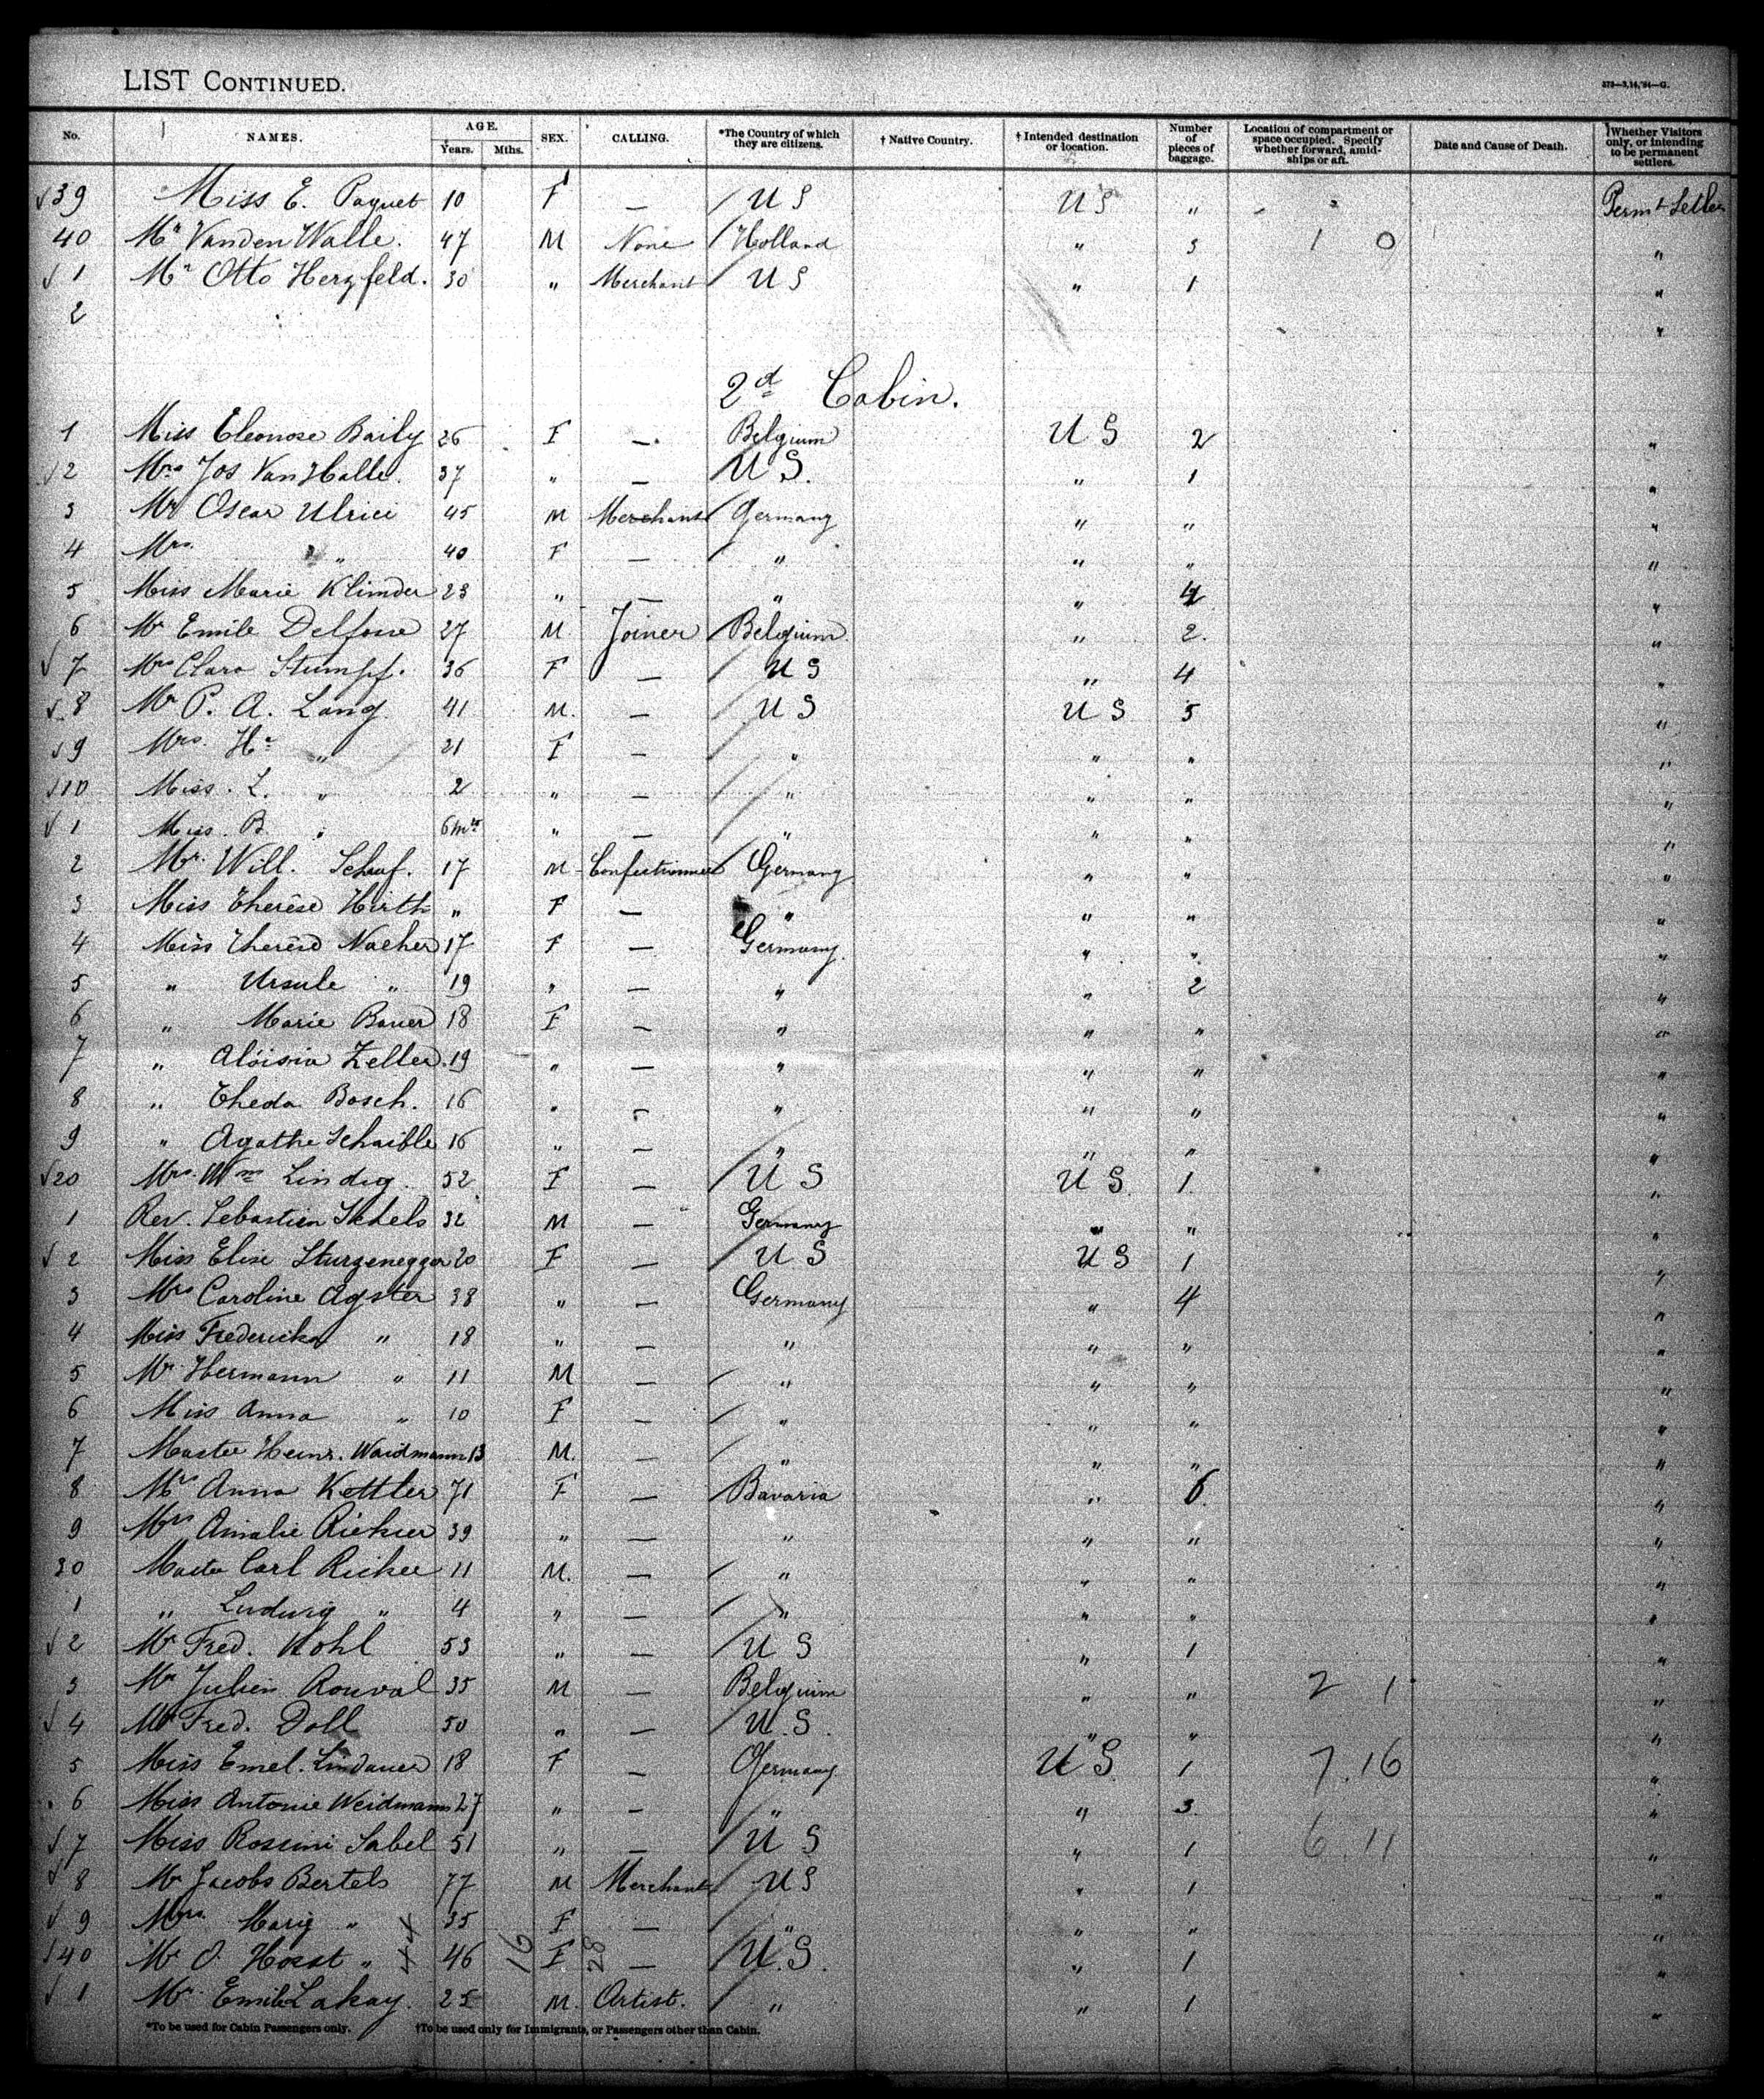 LIST CONTINUED.
No. NAMES. AGE. Years. Mths. SEX. CALLING. *The Country of which they are citizens. † Native Country. † Intended destination or location. Number of pieces of baggage. Location of compartment or space occupied. Specify whether forward, amidships or aft. Date and Cause of Death. Whether Visitors only, or intending to be permanent settlers.
√39 Miss E. Paquet 10 F — U S U S " Permt Settler
40 Mr Vanden Walle. 47 M None Holland " 3 1 0 "
√ 1 Mr Otto Herzfeld. 30 " Merchant U S " 1 "
2 "
2d Cabin.
1 Miss Eleonore Baily 26 F — Belgium U S 2 "
√2 Mrs Jos Van Halle. 37 " — U S. " 1 "
3 Mr Oscar Ulrici 45 M Merchant Germany " " "
4 Mrs. " 40 F — " " " "
5 Miss Marie Klimder 23 " — " " 4 "
6 Mr Emile Delfosse 27 M. Joiner Belgium " 2. "
√ 7 Mrs Clara Stumpf. 36 F — U S " 4 "
√ 8 Mr P. A. Lang 41 M. — U S U S 5 "
√9 Mrs. Hr " 21 F — " " " "
√10 Miss. L. " 2 " — " " " "
√ 1 Miss. B. " 6 mts " — " " " "
2 Mr. Will. Schaf. 17 M Confectionner Germany " " "
3 Miss Therèse Hirth " F — " " " "
4 Miss Therèse Nacher 17 F — Germany. " " "
5 " Ursule " 19 " — " " 2 "
6 " Marie Bauer 18 F — " " " "
7 " Aloisia Zeller. 19 " — " " " "
8 " Theda Bosch. 16 " — " " " "
9 " Agathe Schaible 16 " — " " " "
√20 Mrs. Wm Lindig. 52 F — U S U S. 1. "
1 Rev. Sebastien 32 M — Germany " " "
√ 2 Miss Elise Sturzenegger 20 F — U S U S 1 "
3 Mrs Caroline Agster 38 " — Germany " 4 "
4 Miss Fredericka " 18 " — " " " "
5 Mr Hermann " 11 M — " " " "
6 Miss Anna " 10 F — " " " "
7 Master Heinr. Waidmann 13 M. — " " " "
8 Mrs Anna Kettler 71 F — Bavaria " 6. "
9 Mrs Amalie Ricker 39 " — " " " "
30 Master Carl Ricker 11 M. — " " " "
1 " Ludwig " 4 " — " " " "
√2 Mr Fred. Kohl 53 " — U S " 1 "
3 Mr Julien Rouval 35 M — Belgium " " 2 1 "
√ 4 Mr Fred. Doll 50 " — U. S. " " "
5 Miss Emel. Lindauer 18 F — Germany U S 1 7.16 "
6 Miss Antonie Weidmann 27 " — " " 3. "
√ 7 Miss Rossini Sabel 51 " — U S " 1 6 11 "
√ 8 Mr Jacobs Bertels 77 M Merchant U S " 1 "
√ 9 Mrs. Marig " 35 F — " " " "
√40 Mr O. Horst " 44 46 16 F 28 — U. S. " 1 "
√ 1 Mr. Emile Lakay. 25 M. Artist. " " 1 "
*To be used for Cabin Passengers only. †To be used only for Immigrants, or Passengers other than Cabin.